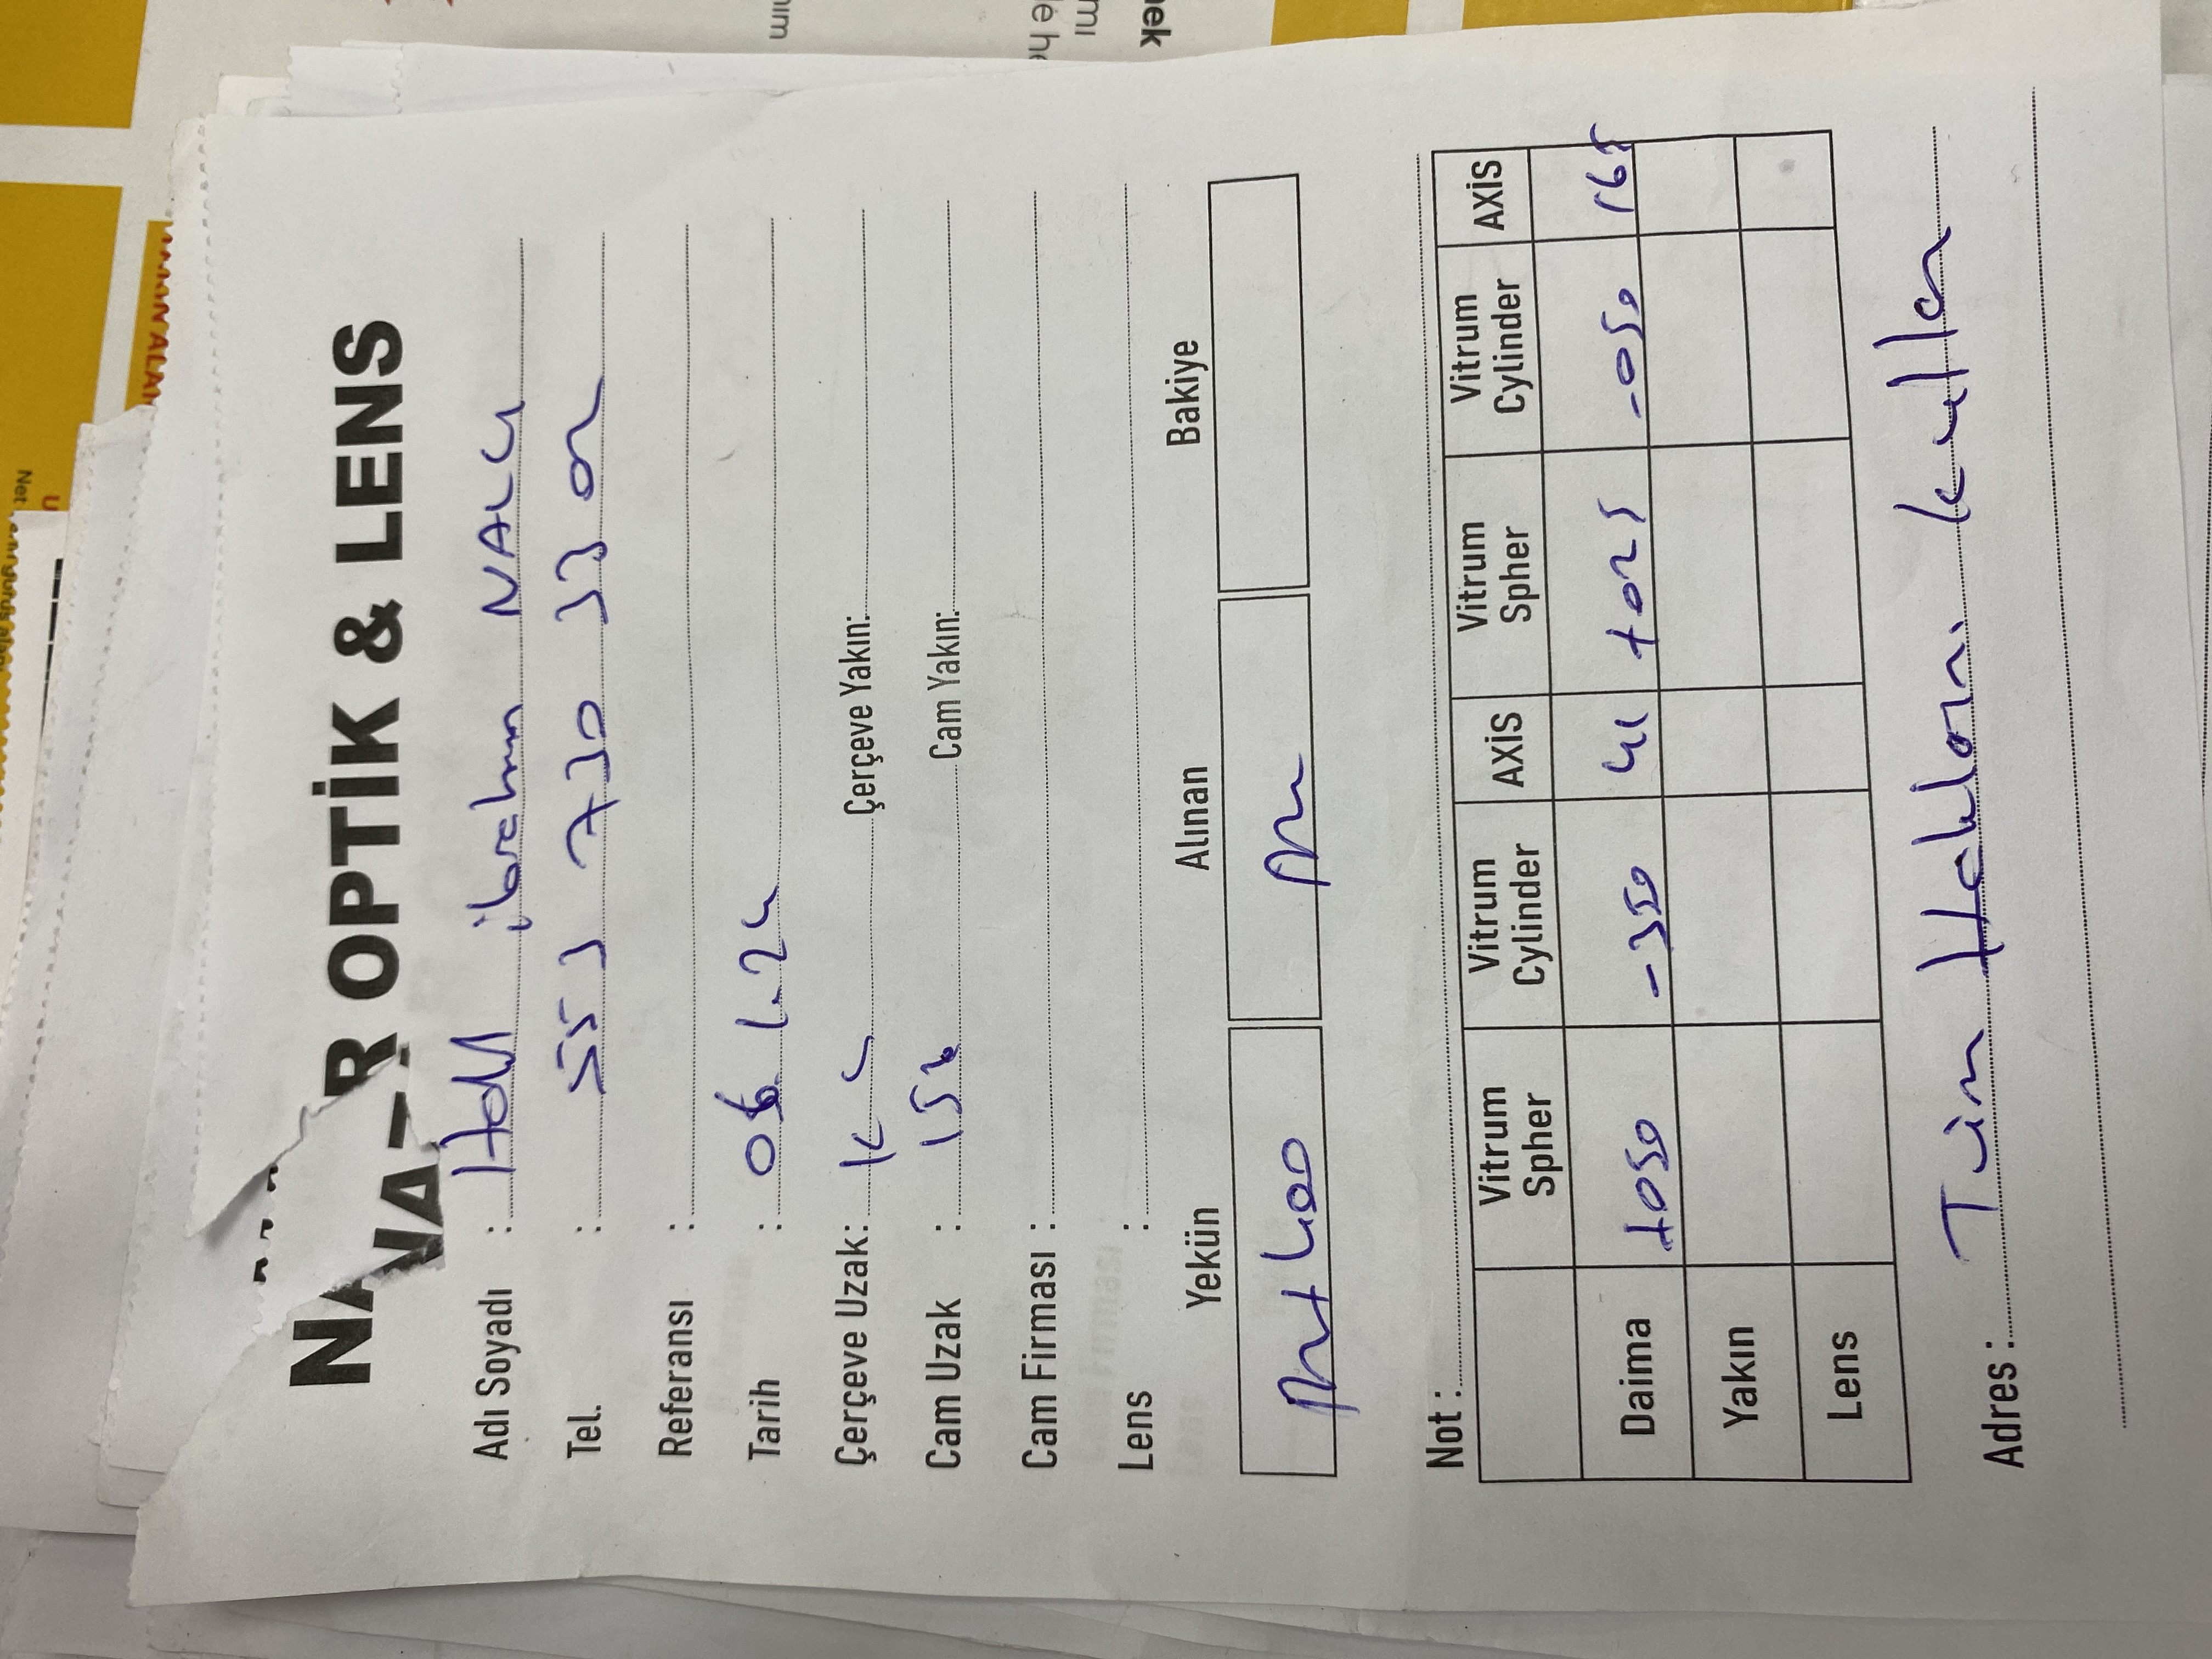 OPTİK & LENS
Adı Soyadı : Halil ibrahim NALCI
Tel. : 553 730 33 02
Referansı :
Tarih : 06. 1. 24
Çerçeve Uzak: Çerçeve Yakın:
Cam Uzak : Cam Yakın:
Cam Firması :
Lens :
Yekün Alınan Bakiye
400
Not :
Vitrum Spher Vitrum Cylinder AXİS Vitrum Spher Vitrum Cylinder AXİS
Daima +050 -350 41 +025 -050 165
Yakın
Lens
Adres : Tüm Hakları kullan